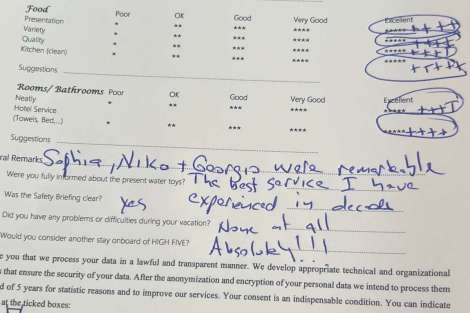 Food Poor OK Good Very Good Excellent
Presentation * ** *** **** ***** ++++
Variety * ** *** **** ***** ++++
Quality * ** *** **** ***** ++++
Kitchen (clean) * ** *** **** ***** ++++
Suggestions
Rooms/ Bathrooms Poor OK Good Very Good Excellent
Neatly * ** *** **** ***** +++
Hotel Service
(Towels, Bed,..) * ** *** **** ***** ++++
Suggestions
ral Remarks Sophia, Niko + Georgio were remarkable
Were you fully informed about the present water toys? The best service I have
Was the Safety Briefing clear? yes experienced in decade
Did you have any problems or difficulties during your vacation? None at all
Would you consider another stay onboard of HIGH FIVE? Absolutely!!!
e you that we process your data in a lawful and transparent manner. We develop appropriate technical and organizational
s that ensure the security of your data. After the anonymization and encryption of your personal data we intend to process them
d of 5 years for statistic reasons and to improve our services. Your consent is an indispensable condition. You can indicate
at the ticked boxes: